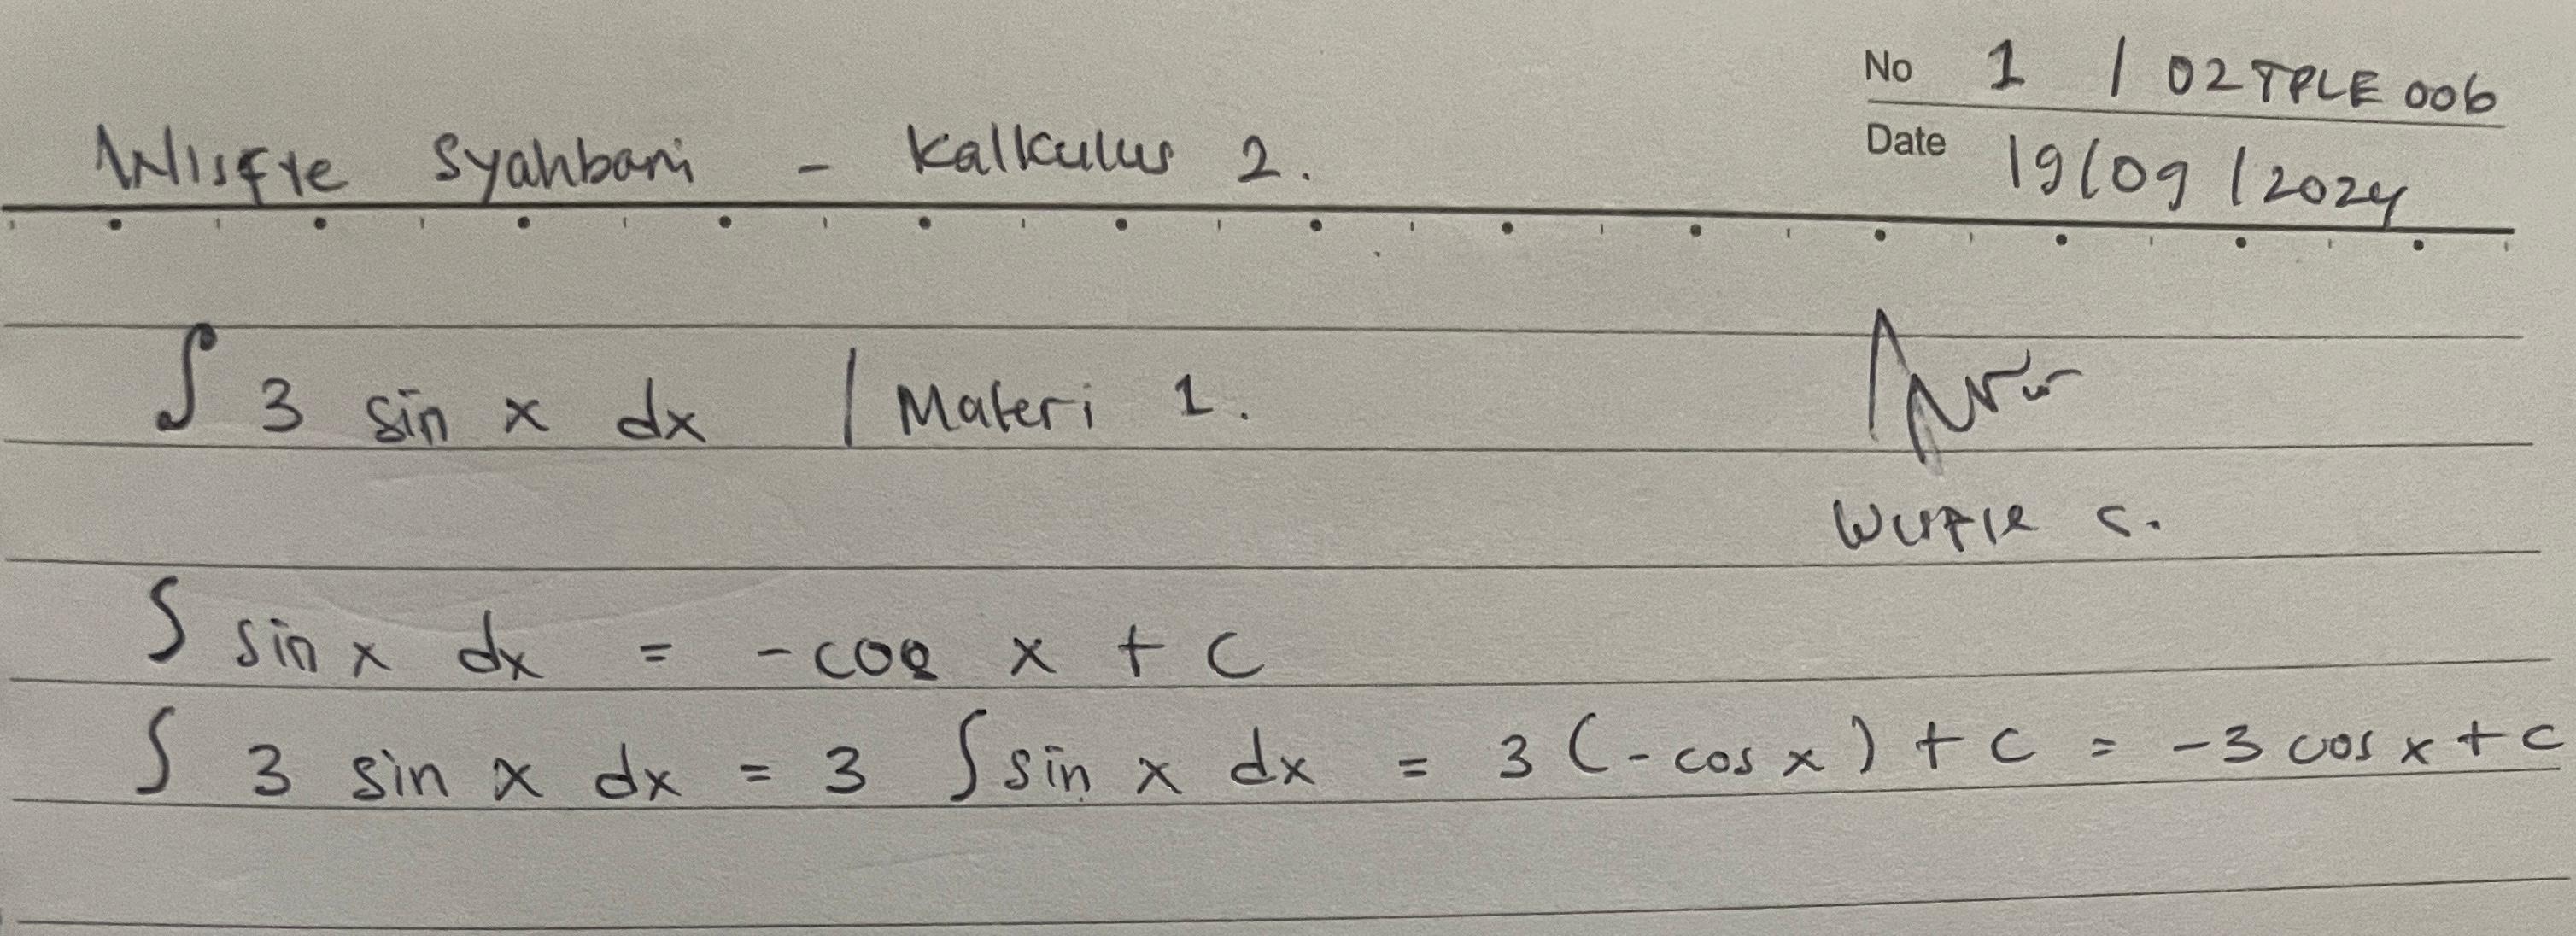 No 1 / 02TPLE006
Date 19/09/2024
Syahbani - Kalkulus 2.
∫ 3 sin x dx | Materi 1.
∫ sin x dx = -cos x + C
∫ 3 sin x dx = 3 ∫ sin x dx = 3 (-cos x) + C = -3 cos x + C